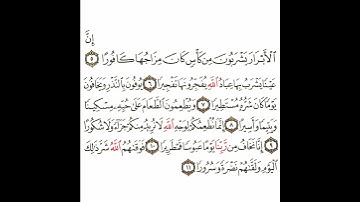 إِنَّ
ٱلْأَبْرَارَ يَشْرَبُونَ مِن كَأْسٍ كَانَ مِزَاجُهَا كَافُورًا ٥
عَيْنًا يَشْرَبُ بِهَا عِبَادُ ٱللَّهِ يُفَجِّرُونَهَا تَفْجِيرًا ٦ يُوفُونَ بِٱلنَّذْرِ وَيَخَافُونَ
يَوْمًا كَانَ شَرُّهُۥ مُسْتَطِيرًا ٧ وَيُطْعِمُونَ ٱلطَّعَامَ عَلَىٰ حُبِّهِۦ مِسْكِينًا
وَيَتِيمًا وَأَسِيرًا ٨ إِنَّمَا نُطْعِمُكُمْ لِوَجْهِ ٱللَّهِ لَا نُرِيدُ مِنكُمْ جَزَآءً وَلَا شُكُورًا
٩ إِنَّا نَخَافُ مِن رَّبِّنَا يَوْمًا عَبُوسًا قَمْطَرِيرًا ١٠ فَوَقَىٰهُمُ ٱللَّهُ شَرَّ ذَٰلِكَ
ٱلْيَوْمِ وَلَقَّىٰهُمْ نَضْرَةً وَسُرُورًا ١١